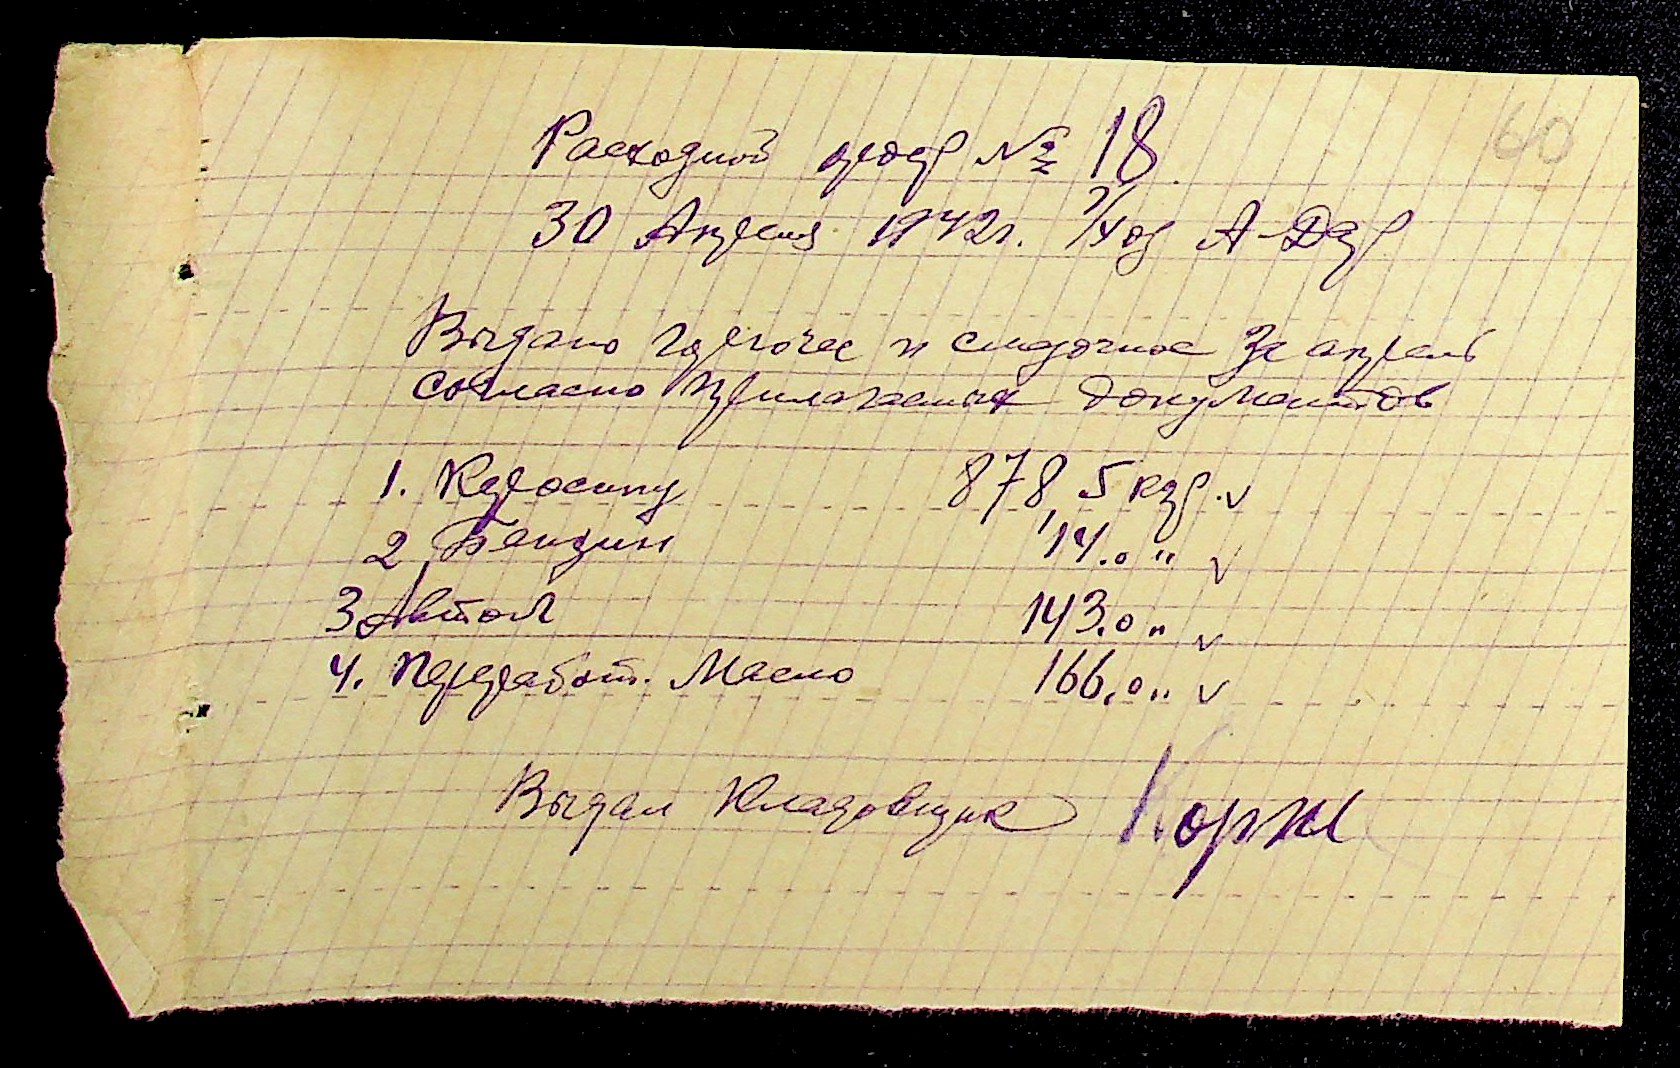 60
Расходной ордер № 18
30 Апреля 1942г. А-Дар
Выдано горючее и смазочное За апрель
согласно прилагаемых документов
1. Керосину 878,5 кгр. ✓
2 Бензин 14.0 " ✓
3 Автол 143.0 " ✓
4. Переработ. Масло 166.0 " ✓
Выдал Кладовщик Корж